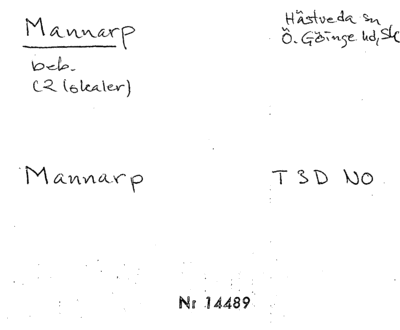 Mannarp
Hästveda sn
Ö. Göinge hd, Sk
beb.
(2 lokaler)
Mannarp
T 3 D NO
Nr 14489